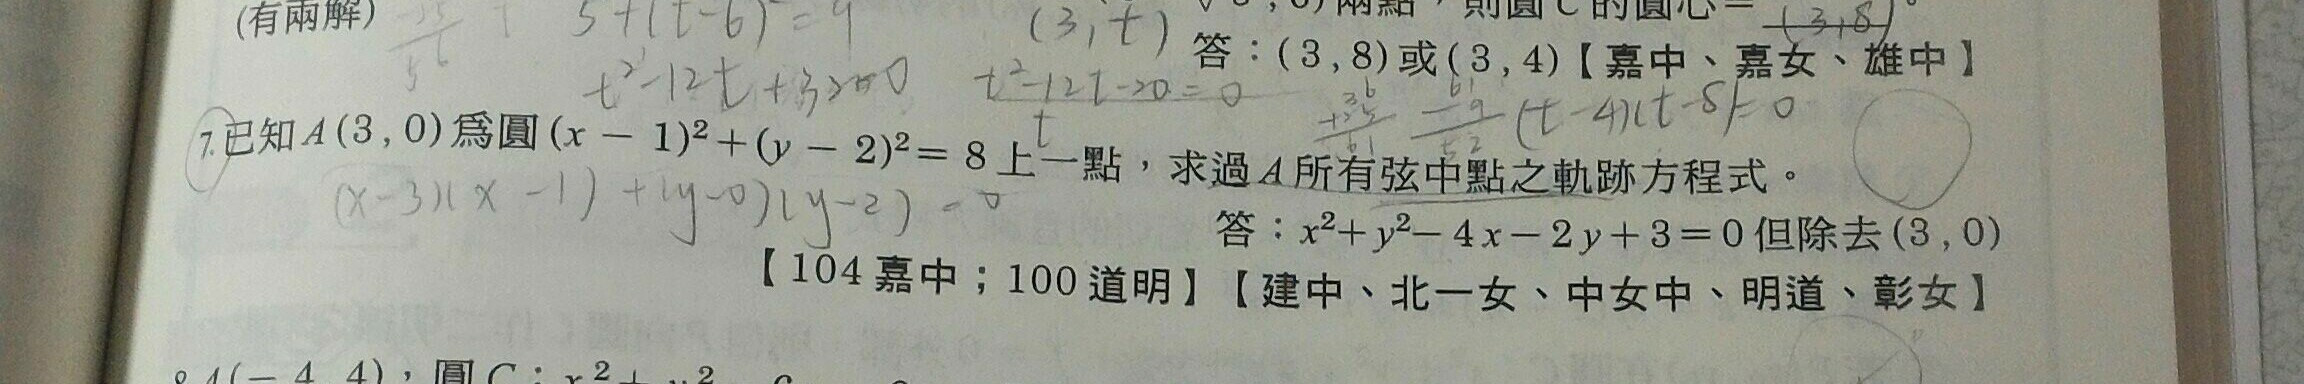 (有兩解)
5+(t-6)²=9
(3,t)
兩點，則圓C的圓心=(3,8)。
答：(3,8)或(3,4)【嘉中、嘉女、雄中】
t²-12t+32=0
t²-12t-20=0
(t-4)(t-8)=0
7.已知A(3,0)爲圓(x－1)²+(y－2)²=8上一點，求過A所有弦中點之軌跡方程式。
(x-3)(x-1)+(y-0)(y-2)=0
答：x²+y²－4x－2y+3=0但除去(3,0)
【104嘉中；100道明】【建中、北一女、中女中、明道、彰女】